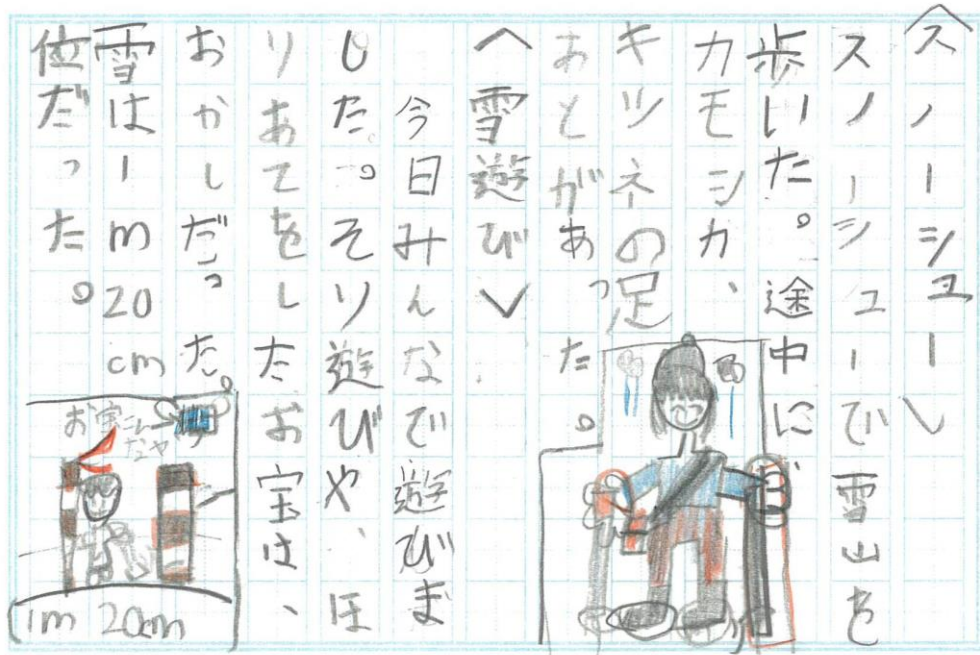 〈スノーシュー〉
スノーシューで雪山を
歩いた。途中に
カモシカ、
キツネの足
あとがあった。
〈雪遊び〉
今日みんなで遊びま
した。そり遊びや、ほ
りあてをした、お宝は、
おかしだった。
雪は1m20cm
位だった。
お宝
1m 20cm